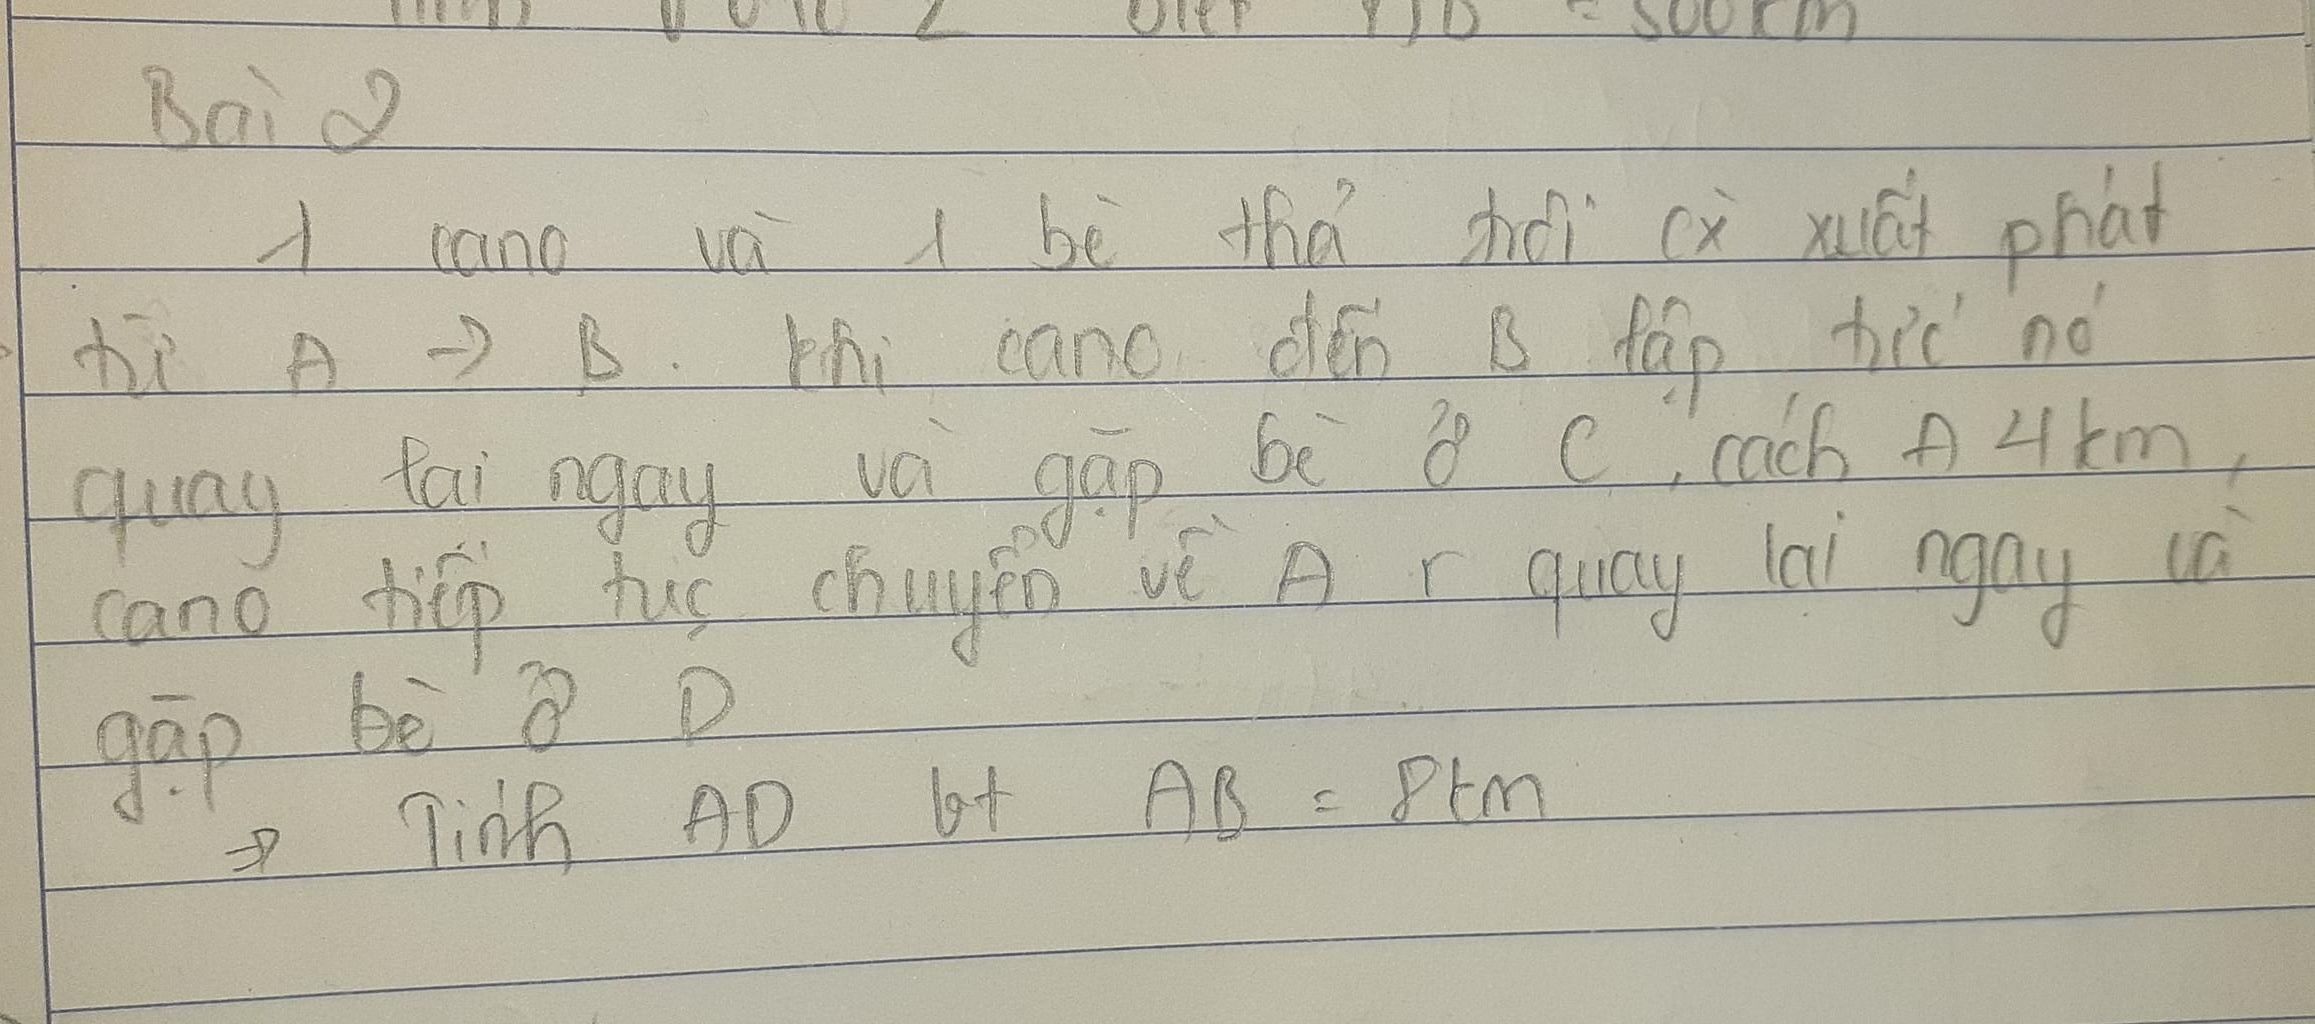 = 300km
Bài 2
1 cano và 1 bè thả trôi cx xuất phát
từ A → B. khi cano đến B lập tức nó
quay lại ngay và gặp bè ở C, cách A 4km,
cano tiếp tục chuyển về A r quay lại ngay và
gặp bè ở D
⇒ Tính AD bt AB = 8km